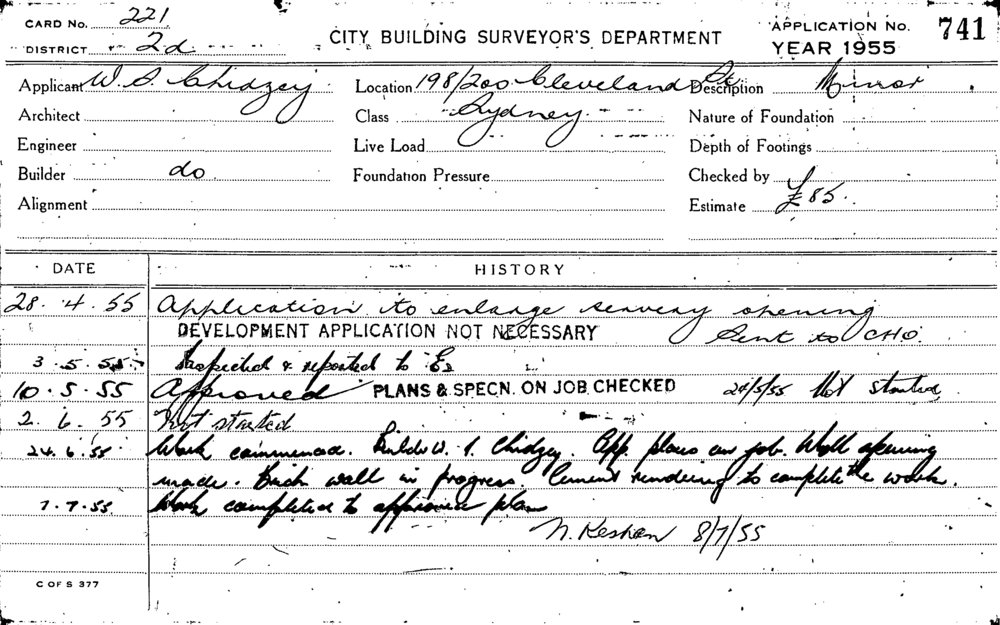 CARD No. 221
DISTRICT 2d
CITY BUILDING SURVEYOR'S DEPARTMENT
APPLICATION No. 741
YEAR 1955
Applicant W. S. Chidzey
Location 198/200 Cleveland St
Description Minor
Architect
Class Sydney
Nature of Foundation
Engineer
Live Load
Depth of Footings
Builder do
Foundation Pressure
Checked by
Alignment
Estimate £85.
DATE HISTORY
28.4.55 Application to enlarge servery opening
DEVELOPMENT APPLICATION NOT NECESSARY Sent to CHO.
3.5.55 Inspected & reported to
10.5.55 Approved PLANS & SPECN. ON JOB CHECKED 24/5/55 Not started
2.6.55 Not started
24.6.55 Work commenced. Builder W. S. Chidzey. App. plans on job. Wall opening
made. Brick wall in progress. Cement rendering to complete the work.
7.7.55 Work completed to approved plan
8/7/55
C OF S 377